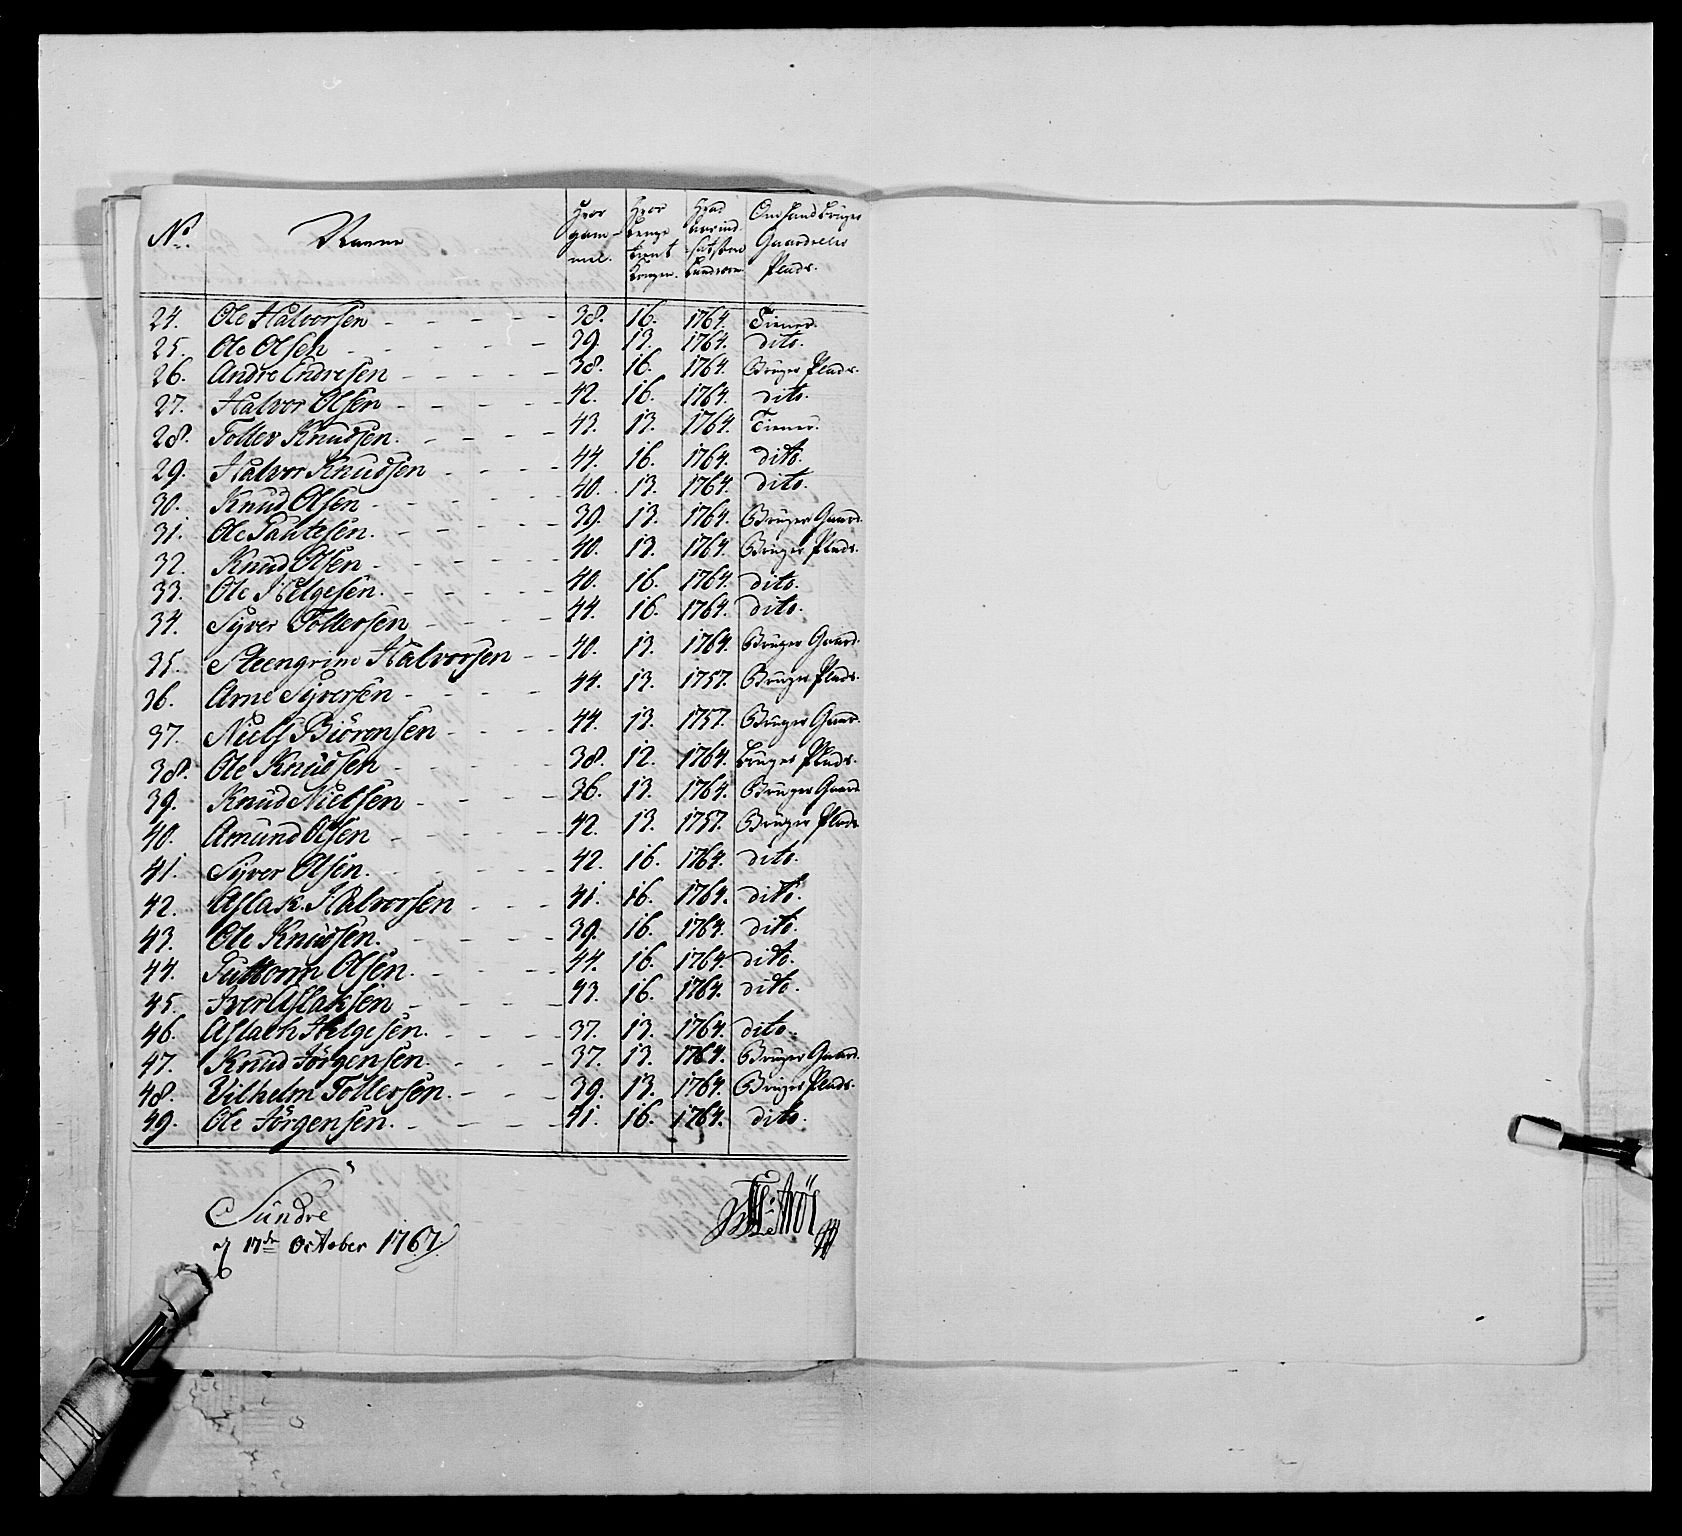 No. Navne Hvor gam- mel. Hvor lenge tient Kongen. Hvad Aar ind- sat Land Om hand bruger Gaard eller Plads.
24. Ole Halvorsen - - - - - 38. 16. 1764. Tiener.
25. Ole Olsen - - - - - 39. 13. 1764. dito.
26. Andre Endresen - - - - - 38. 16. 1764. Bruger Plads.
27. Halvor Olsen - - - - - 42. 16. 1764. dito.
28. Tollev Knudsen. - - - - 43. 13. 1764. Tiener.
29. Halvor Knudsen - - - - 44. 16. 1764. dito.
30. Knud Olsen - - - - - 40. 13. 1764. dito.
31. Ole Paulsen. - - - - 39. 13. 1764. Bruger Gaard.
32. Knud Olsen - - - - - 40. 13. 1764. Bruger Plads.
33. Ole Helgesen. - - - - 40. 16. 1764. dito.
34. Syver Tollevsen - - - - 44. 16. 1764. dito.
35. Steengrim Halvorsen - - 40. 13. 1764. Bruger Gaard.
36. Arne Syversen - - - - 44. 13. 1757. Bruger Plads.
37. Niels Biörensen - - - - 44. 13. 1757. Bruger Gaar.
38. Ole Knudsen - - - - 38. 12. 1764. bruger Plads.
39. Knud Nielsen - - - - 36. 13. 1764. Bruger Gaard
40. Amund Olsen - - - - 42. 13. 1757. Bruger Plads
41. Syver Olsen. - - - - 42. 16. 1764. dito.
42. Aslak Halvorsen - - - 41. 16. 1764. dito.
43. Ole Knudsen. - - - - 39. 16. 1764. dito.
44. Guttorm Olsen. - - - - 44. 16. 1764. dito.
45. Iver Aslaksen - - - - 43. 16. 1764. dito.
46. Aslach Helgesen. - - - - 37. 13. 1764. dito.
47. Knud Jörgensen. - - - 37. 13. 1764. Bruger Gaard.
48. Vilhelm Tollevsen. - - - 39. 13. 1764. Bruger Plads.
49. Ole Jörgensen. - - - - 41. 16. 1764. dito.
Sundre
17de October 1767.